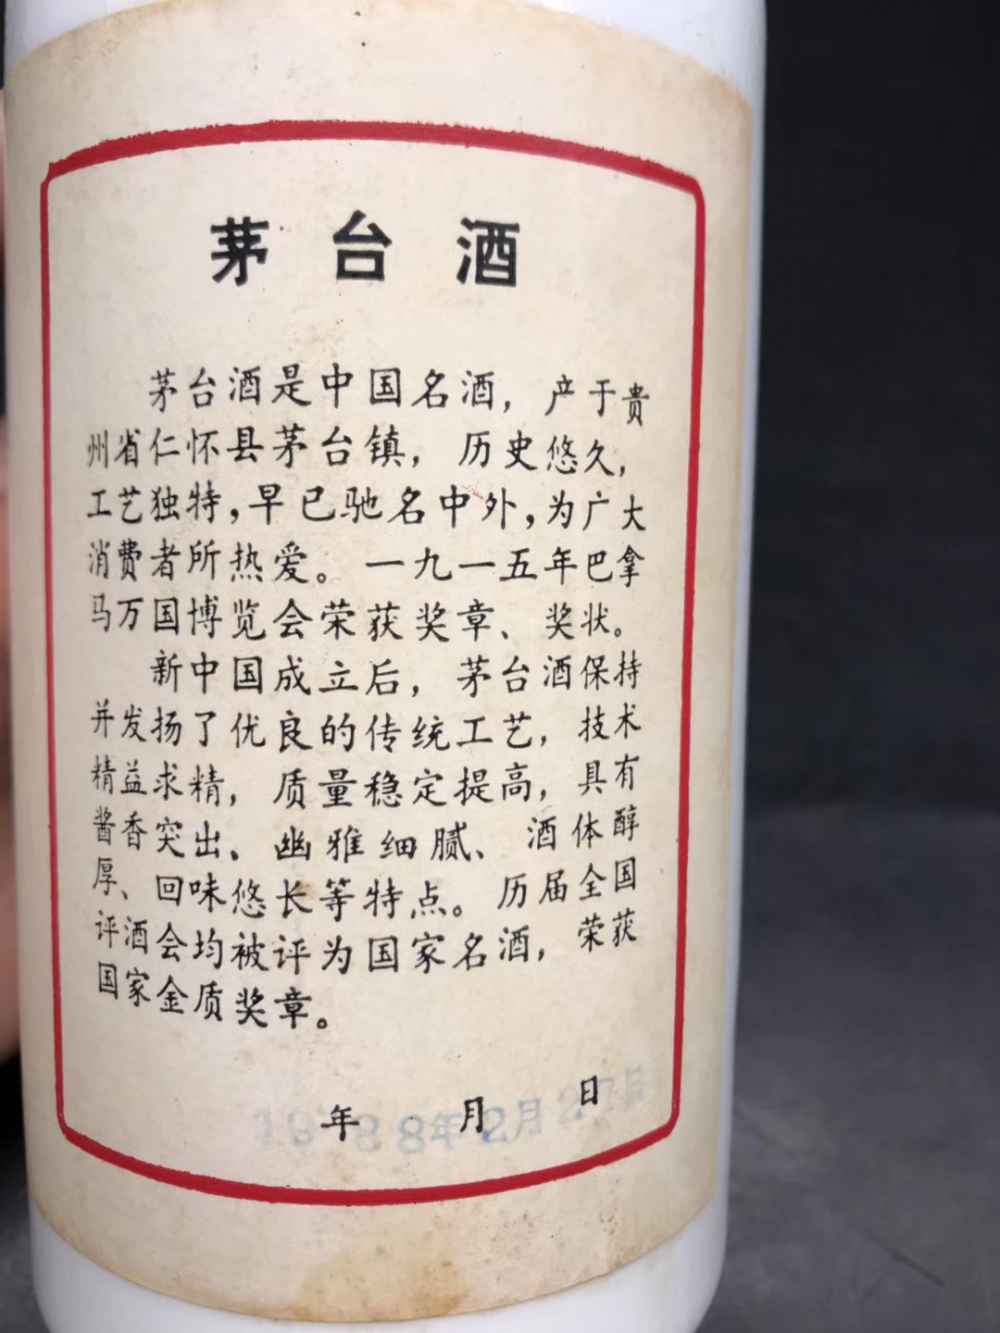 茅台酒
茅台酒是中国名酒，产于贵
州省仁怀县茅台镇，历史悠久，
工艺独特，早已驰名中外，为广大
消费者所热爱。一九一五年巴拿
马万国博览会荣获奖章、奖状。
新中国成立后，茅台酒保持
并发扬了优良的传统工艺，技术
精益求精，质量稳定提高，具有
酱香突出、幽雅细腻、酒体醇
厚、回味悠长等特点。历届全国
评酒会均被评为国家名酒，荣获
国家金质奖章。
年 月 日
1988年2月27日